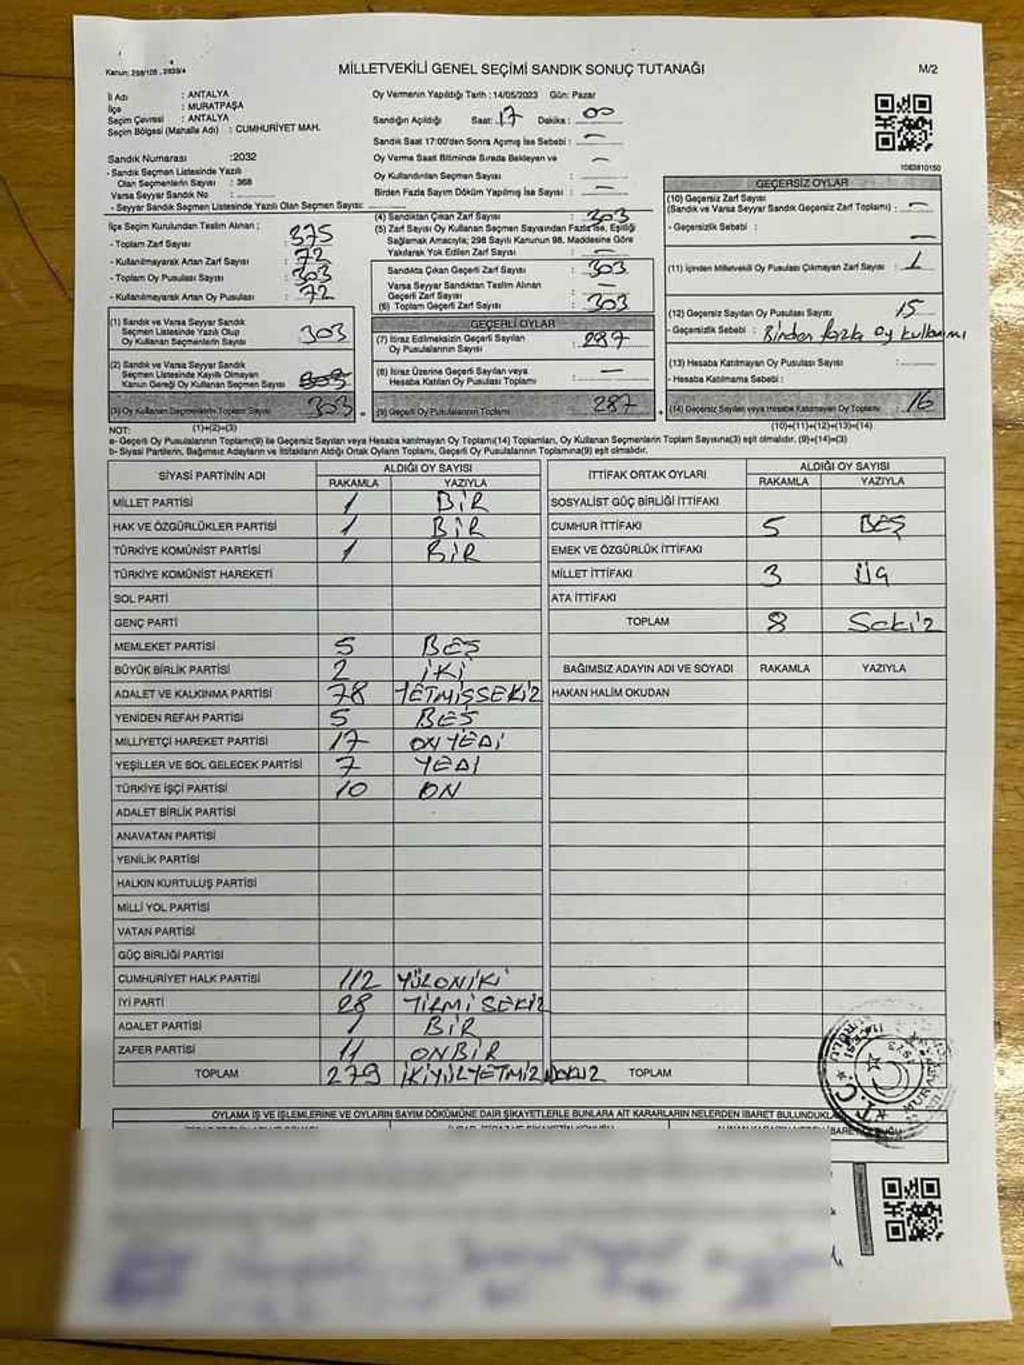 Kanun: 298/105, 2839/4
MİLLETVEKİLİ GENEL SEÇİMİ SANDIK SONUÇ TUTANAĞI
M/2
İl Adı : ANTALYA
İlçe : MURATPAŞA
Seçim Çevresi : ANTALYA
Seçim Bölgesi (Mahalle Adı) : CUMHURİYET MAH.
Sandık Numarası :2032
- Sandık Seçmen Listesinde Yazılı
Olan Seçmenlerin Sayısı : 368
Varsa Seyyar Sandık No :
- Seyyar Sandık Seçmen Listesinde Yazılı Olan Seçmen Sayısı:
Oy Vermenin Yapıldığı Tarih : 14/05/2023 Gün: Pazar
Sandığın Açıldığı Saat: 17 Dakika : 00
Sandık Saat 17:00'den Sonra Açılmış İse Sebebi : —
Oy Verme Saat Bitiminde Sırada Bekleyen ve
Oy Kullandırılan Seçmen Sayısı : —
Birden Fazla Sayım Döküm Yapılmış İse Sayısı : —
1083810150
İlçe Seçim Kurulundan Teslim Alınan ;
- Toplam Zarf Sayısı : 375
- Kullanılmayarak Artan Zarf Sayısı : 72
- Toplam Oy Pusulası Sayısı : 303
- Kullanılmayarak Artan Oy Pusulası : 72
(1) Sandık ve Varsa Seyyar Sandık
Seçmen Listesinde Yazılı Olup
Oy Kullanan Seçmenlerin Sayısı 303
(2) Sandık ve Varsa Seyyar Sandık
Seçmen Listesinde Kayıtlı Olmayan
Kanun Gereği Oy Kullanan Seçmen Sayısı
(3) Oy Kullanan Seçmenlerin Toplam Sayısı 303
(1)+(2)=(3)
(4) Sandıktan Çıkan Zarf Sayısı : 303
(5) Zarf Sayısı Oy Kullanan Seçmen Sayısından Fazla ise, Eşitliği
Sağlamak Amacıyla; 298 Sayılı Kanunun 98. Maddesine Göre
Yakılarak Yok Edilen Zarf Sayısı : —
Sandıkta Çıkan Geçerli Zarf Sayısı : 303
Varsa Seyyar Sandıktan Teslim Alınan
Geçerli Zarf Sayısı : —
(6) Toplam Geçerli Zarf Sayısı : 303
GEÇERLİ OYLAR
(7) İtiraz Edilmeksizin Geçerli Sayılan
Oy Pusulalarının Sayısı : 287
(8) İtiraz Üzerine Geçerli Sayılan veya
Hesaba Katılan Oy Pusulası Toplamı : —
(9) Geçerli Oy Pusulalarının Toplamı 287
GEÇERSİZ OYLAR
(10) Geçersiz Zarf Sayısı
(Sandık ve Varsa Seyyar Sandık Geçersiz Zarf Toplamı) : —
- Geçersizlik Sebebi : —
(11) İçinden Milletvekili Oy Pusulası Çıkmayan Zarf Sayısı : 1
(12) Geçersiz Sayılan Oy Pusulası Sayısı : 15
- Geçersizlik Sebebi : Birden fazla oy kullanımı
(13) Hesaba Katılmayan Oy Pusulası Sayısı :
- Hesaba Katılmama Sebebi :
(14) Geçersiz Sayılan veya Hesaba Katılmayan Oy Toplamı : 16
(10)+(11)+(12)+(13)=(14)
NOT:
a- Geçerli Oy Pusulalarının Toplamı(9) ile Geçersiz Sayılan veya Hesaba katılmayan Oy Toplamı(14) Toplamları, Oy Kullanan Seçmenlerin Toplam Sayısına(3) eşit olmalıdır. (9)+(14)=(3)
b- Siyasi Partilerin, Bağımsız Adayların ve İttifakların Aldığı Ortak Oyların Toplamı, Geçerli Oy Pusulalarının Toplamına(9) eşit olmalıdır.
SİYASİ PARTİNİN ADI ALDIĞI OY SAYISI
RAKAMLA YAZIYLA
MİLLET PARTİSİ 1 BİR
HAK VE ÖZGÜRLÜKLER PARTİSİ 1 BİR
TÜRKİYE KOMÜNİST PARTİSİ 1 BİR
TÜRKİYE KOMÜNİST HAREKETİ
SOL PARTİ
GENÇ PARTİ
MEMLEKET PARTİSİ 5 BEŞ
BÜYÜK BİRLİK PARTİSİ 2 İKİ
ADALET VE KALKINMA PARTİSİ 78 YETMİŞSEKİZ
YENİDEN REFAH PARTİSİ 5 BEŞ
MİLLİYETÇİ HAREKET PARTİSİ 17 ON YEDİ
YEŞİLLER VE SOL GELECEK PARTİSİ 7 YEDİ
TÜRKİYE İŞÇİ PARTİSİ 10 ON
ADALET BİRLİK PARTİSİ
ANAVATAN PARTİSİ
YENİLİK PARTİSİ
HALKIN KURTULUŞ PARTİSİ
MİLLİ YOL PARTİSİ
VATAN PARTİSİ
GÜÇ BİRLİĞİ PARTİSİ
CUMHURİYET HALK PARTİSİ 112 YÜZONİKİ
İYİ PARTİ 28 YİRMİ SEKİZ
ADALET PARTİSİ 1 BİR
ZAFER PARTİSİ 11 ONBİR
TOPLAM 279 İKİYÜZYETMİŞ DOKUZ
İTTİFAK ORTAK OYLARI ALDIĞI OY SAYISI
RAKAMLA YAZIYLA
SOSYALİST GÜÇ BİRLİĞİ İTTİFAKI
CUMHUR İTTİFAKI 5 BEŞ
EMEK VE ÖZGÜRLÜK İTTİFAKI
MİLLET İTTİFAKI 3 ÜÇ
ATA İTTİFAKI
TOPLAM 8 Sekiz
BAĞIMSIZ ADAYIN ADI VE SOYADI RAKAMLA YAZIYLA
HAKAN HALİM OKUDAN
TOPLAM
T.C.
OYLAMA İŞ VE İŞLEMLERİNE VE OYLARIN SAYIM DÖKÜMÜNE DAİR ŞİKAYETLERLE BUNLARA AİT KARARLARIN NELERDEN İBARET BULUNDUKLA